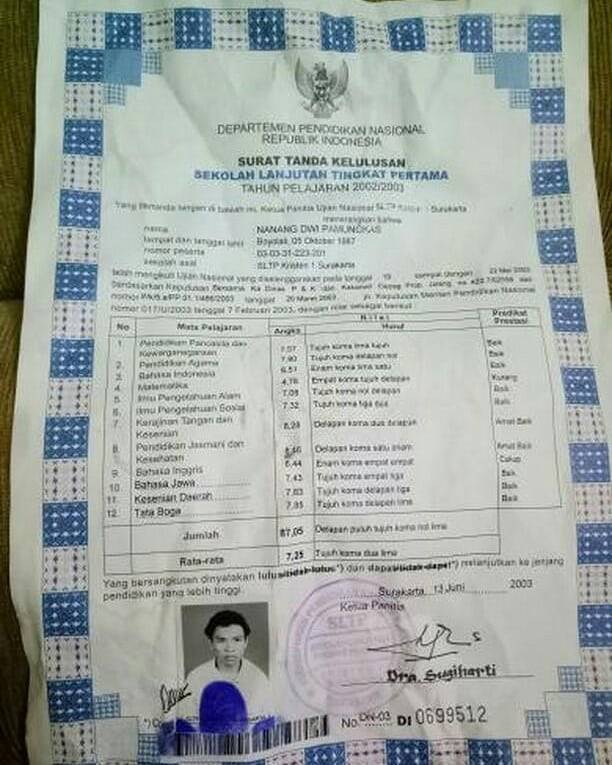 DEPARTEMEN PENDIDIKAN NASIONAL
REPUBLIK INDONESIA
SURAT TANDA KELULUSAN
SEKOLAH LANJUTAN TINGKAT PERTAMA
TAHUN PELAJARAN 2002/2003
Yang bertanda tangan di bawah ini, Ketua Panitia Ujian Nasional SLTP Surakarta
menerangkan bahwa
nama NANANG DWI PAMUNGKAS
tempat dan tanggal lahir Boyolali, 05 Oktober 1987
nomor peserta 03-03-31-223-201
sekolah asal SLTP Kristen 1 Surakarta
telah mengikuti Ujian Nasional yang diselenggarakan pada tanggal 19 sampai dengan 23 Mei 2003
berdasarkan Keputusan Bersama Ka Dinas P & K dan Kakanwil
nomor tanggal 20 Maret 2003 jo. Keputusan Menteri Pendidikan Nasional
nomor 017/U/2003 tanggal 7 Februari 2003, dengan nilai sebagai berikut :
No Mata Pelajaran Nilai Predikat Prestasi
Angka Huruf
1 Pendidikan Pancasila dan Kewarganegaraan 7,57 Tujuh koma lima tujuh Baik
2. Pendidikan Agama 7,80 Tujuh koma delapan nol Baik
3 Bahasa Indonesia 6,51 Enam koma lima satu Baik
4 Matematika 4,78 Empat koma tujuh delapan Kurang
5 Ilmu Pengetahuan Alam 7,08 Tujuh koma nol delapan Baik
6 Ilmu Pengetahuan Sosial 7,32 Tujuh koma tiga dua Baik
7 Kerajinan Tangan dan Kesenian 8,28 Delapan koma dua delapan Amat Baik
8. Pendidikan Jasmani dan Kesehatan Delapan koma satu enam Amat Baik
9. Bahasa Inggris 6,44 Enam koma empat empat Cukup
10 Bahasa Jawa 7,43 Tujuh koma empat tiga Baik
11. Kesenian Daerah 7,83 Tujuh koma delapan tiga Baik
12. Tata Boga Tujuh koma delapan lima Baik
Jumlah 87,05 Delapan puluh tujuh koma nol lima
Rata-rata 7,25 Tujuh koma dua lima
Yang bersangkutan dinyatakan lulus/tidak lulus*) dan dapat/tidak dapat*) melanjutkan ke jenjang
pendidikan yang lebih tinggi.
Surakarta, 13 Juni 2003
Ketua Panitia
SLTP
Dra. Sugiharti
No DN-03 DI 0699512